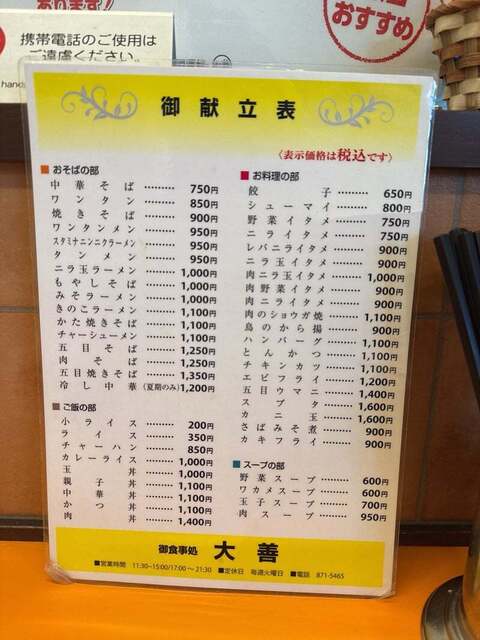 携帯電話のご使用は
ご遠慮ください。
おすすめ
御献立表
〈表示価格は税込です〉
■おそばの部
中華そば ……… 750円
ワンタン ……… 850円
焼きそば ……… 900円
ワンタンメン ……… 950円
スタミナニンニクラーメン ……… 950円
タンメン ……… 950円
ニラ玉ラーメン ……… 1,000円
もやしそば ……… 1,000円
みそラーメン ……… 1,000円
きのこラーメン ……… 1,100円
かた焼きそば ……… 1,100円
チャーシューメン ……… 1,100円
五目そば ……… 1,250円
肉そば ……… 1,250円
五目焼きそば ……… 1,350円
冷し中華(夏期のみ) 1,200円
■ご飯の部
小ライス ……… 200円
ライス ……… 350円
チャーハン ……… 850円
カレーライス ……… 1,000円
玉丼 ……… 1,000円
親子丼 ……… 1,100円
中華丼 ……… 1,100円
かつ丼 ……… 1,100円
肉丼 ……… 1,400円
■お料理の部
餃子 ……… 650円
シューマイ ……… 800円
野菜イタメ ……… 750円
ニライタメ ……… 750円
レバニライタメ ……… 900円
ニラ玉イタメ ……… 900円
肉ニラ玉イタメ ……… 1,000円
肉野菜イタメ ……… 900円
肉ニライタメ ……… 900円
肉のショウガ焼 ……… 1,100円
鳥のから揚 ……… 900円
ハンバーグ ……… 1,100円
とんかつ ……… 1,100円
チキンカツ ……… 1,100円
エビフライ ……… 1,200円
五目ウマニ ……… 1,400円
スブタ ……… 1,600円
カニ玉 ……… 1,600円
さばみそ煮 ……… 900円
カキフライ ……… 900円
■スープの部
野菜スープ ……… 600円
ワカメスープ ……… 600円
玉子スープ ……… 700円
肉スープ ……… 950円
御食事処 大善
■営業時間 11:30~15:00/17:00~21:30 ■定休日 毎週火曜日 ■電話 871-5465